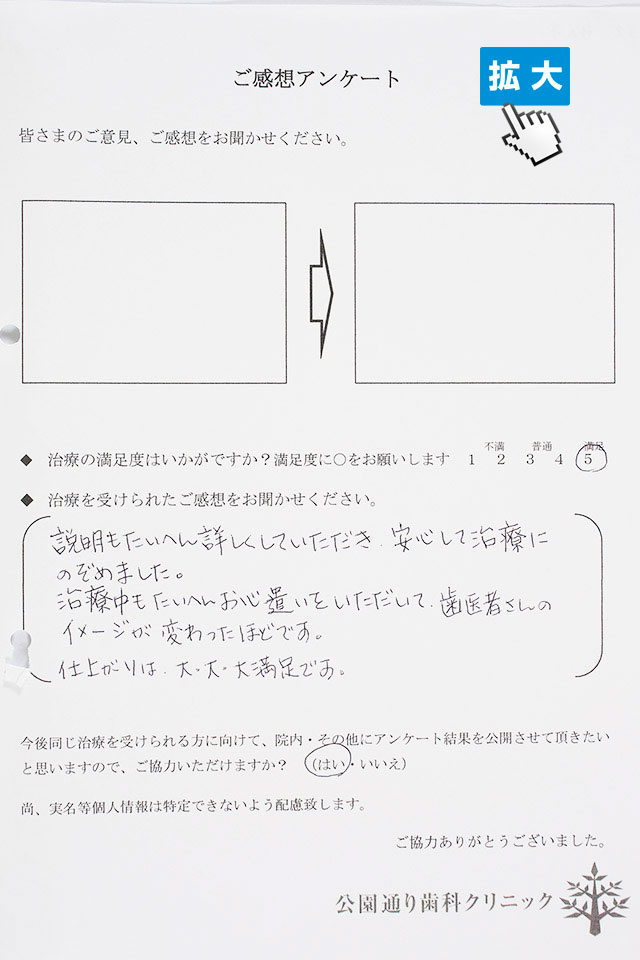 ご感想アンケート
拡大
皆さまのご意見、ご感想をお聞かせください。
不満 普通 満足
◆ 治療の満足度はいかがですか?満足度に○をお願いします 1 2 3 4 5
◆ 治療を受けられたご感想をお聞かせください。
説明もたいへん詳しくしていただき、安心して治療に
のぞめました。
治療中もたいへんお心遣いをいただいて、歯医者さんの
イメージが変わったほどです。
仕上がりは、大・大・大満足です。
今後同じ治療を受けられる方に向けて、院内・その他にアンケート結果を公開させて頂きたい
と思いますので、ご協力いただけますか? (はい・いいえ)
尚、実名等個人情報は特定できないよう配慮致します。
ご協力ありがとうございました。
公園通り歯科クリニック